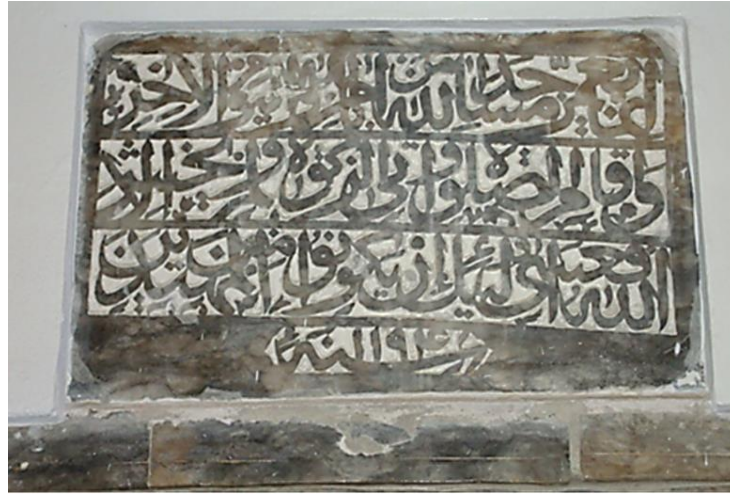 انما يعمر مساجد الله من امن بالله واليوم الاخر
واقام الصلوة واتى الزكوة ولم يخش الا
الله فعسى اولئك ان يكونوا من المهتدين